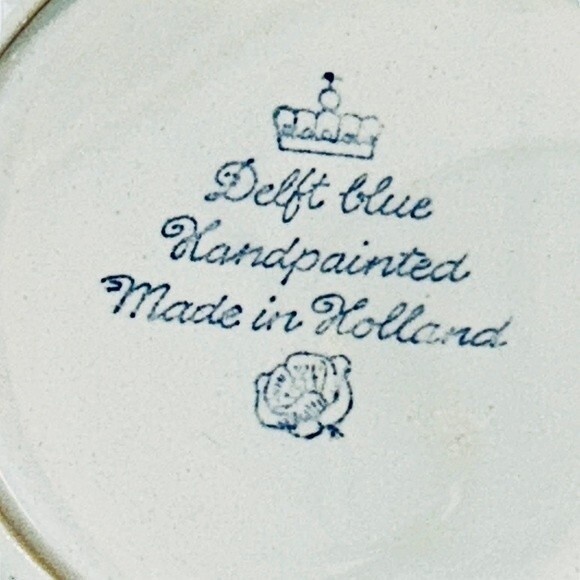 Delft blue
Handpainted
Made in Holland